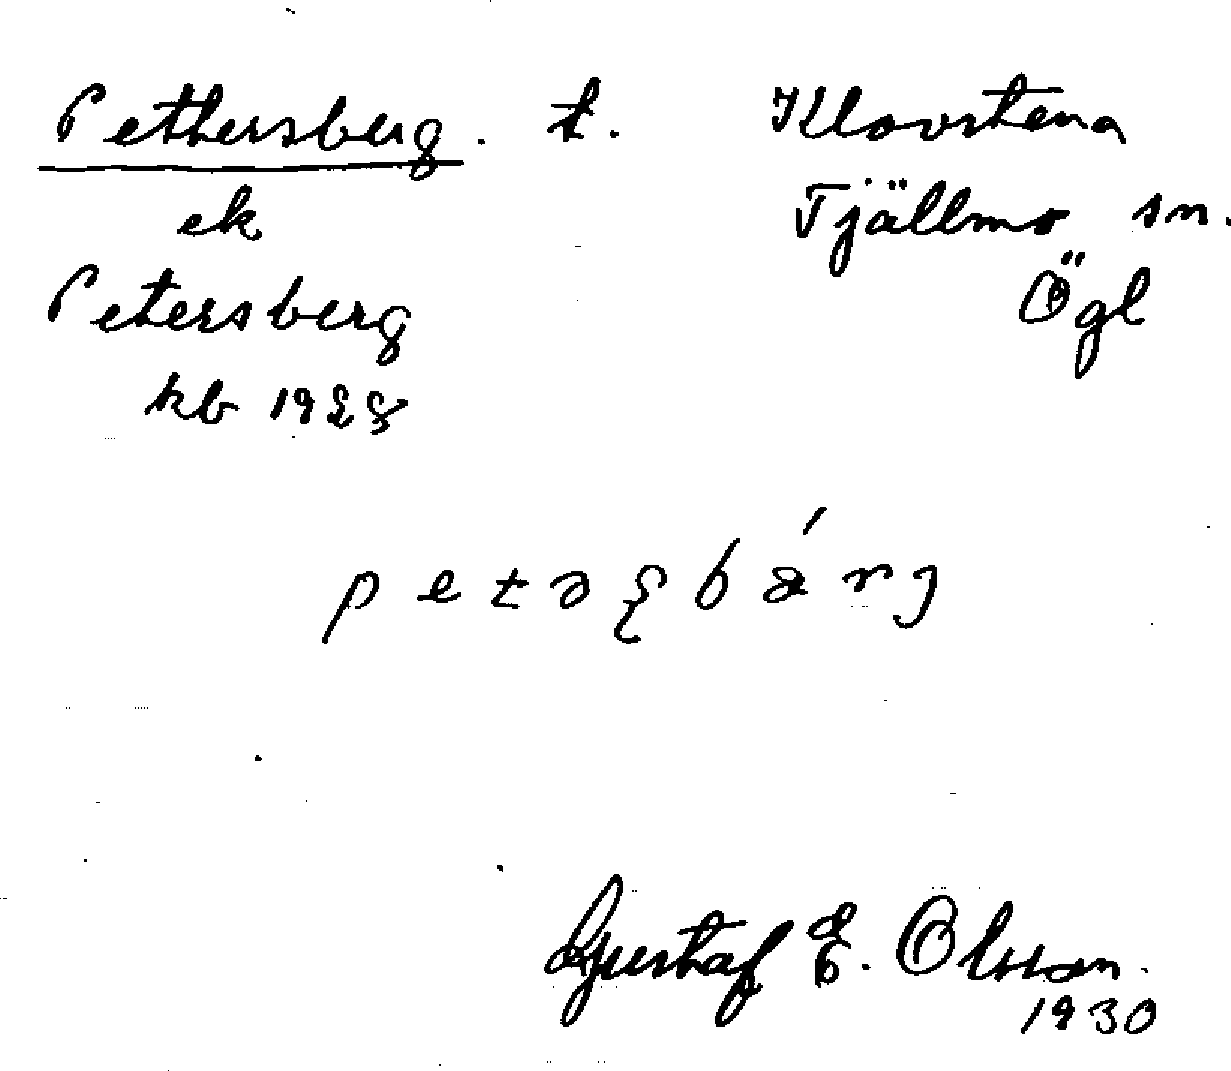 Pethersberg. t. Klovstena
ek Tjällmo sn.
Petersberg Ögl
kb 1928
petəʂbǽrj
Gustaf E. Olsson.
1930